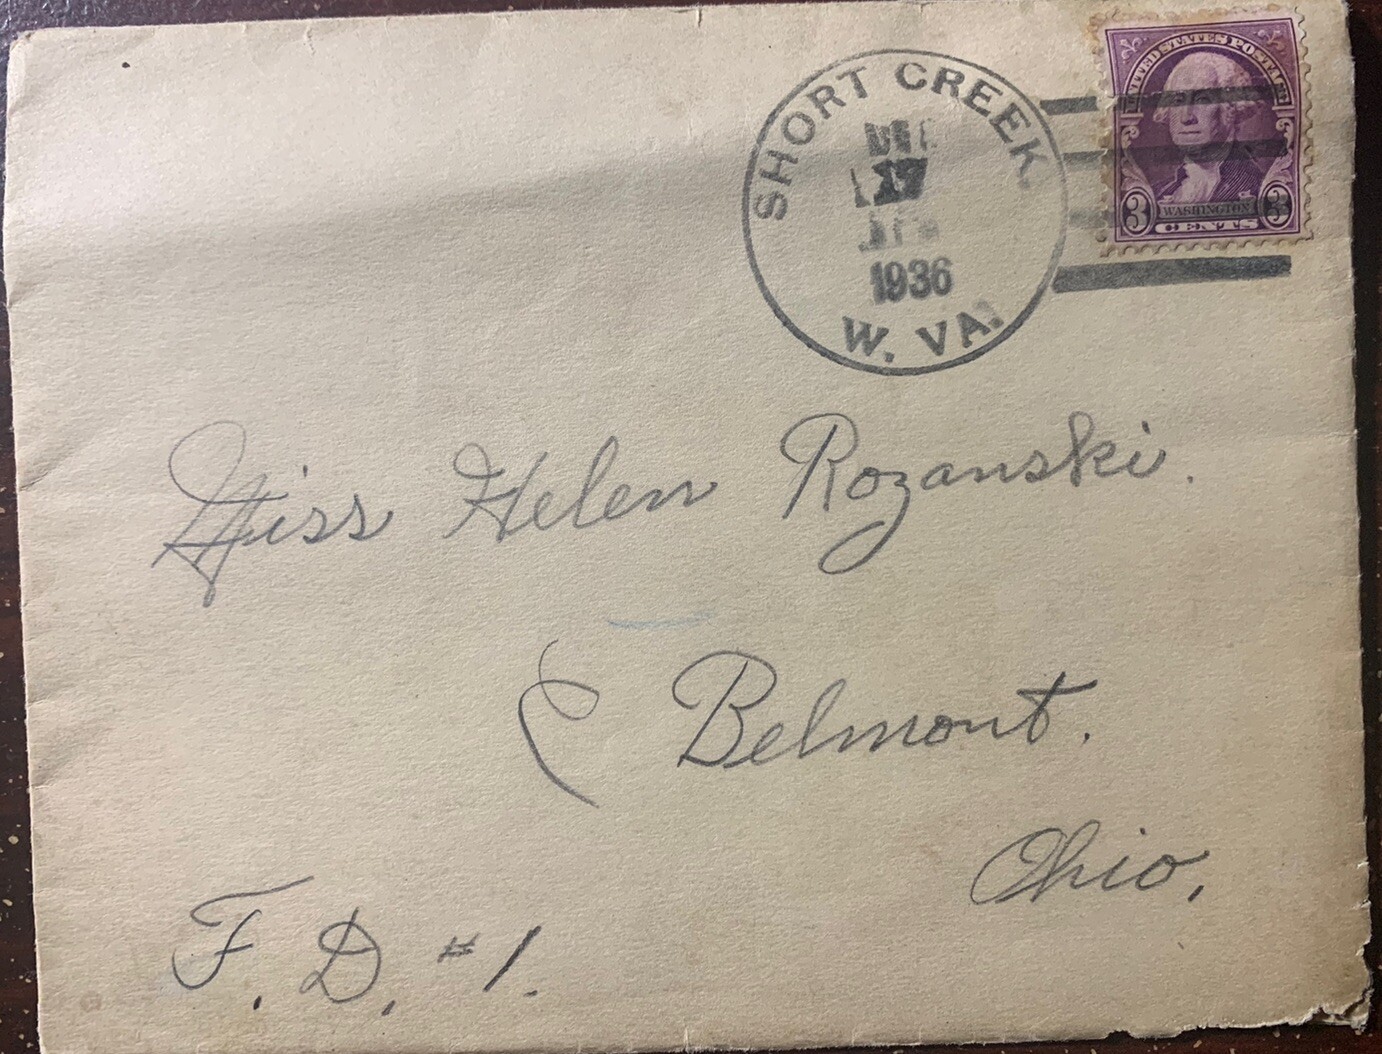 SHORT CREEK
DEC
17
1936
W. VA.
UNITED STATES POSTAGE
3 WASHINGTON 3
CENTS
Miss Helen Rozanski.
Belmont.
Ohio.
F. D. #1.